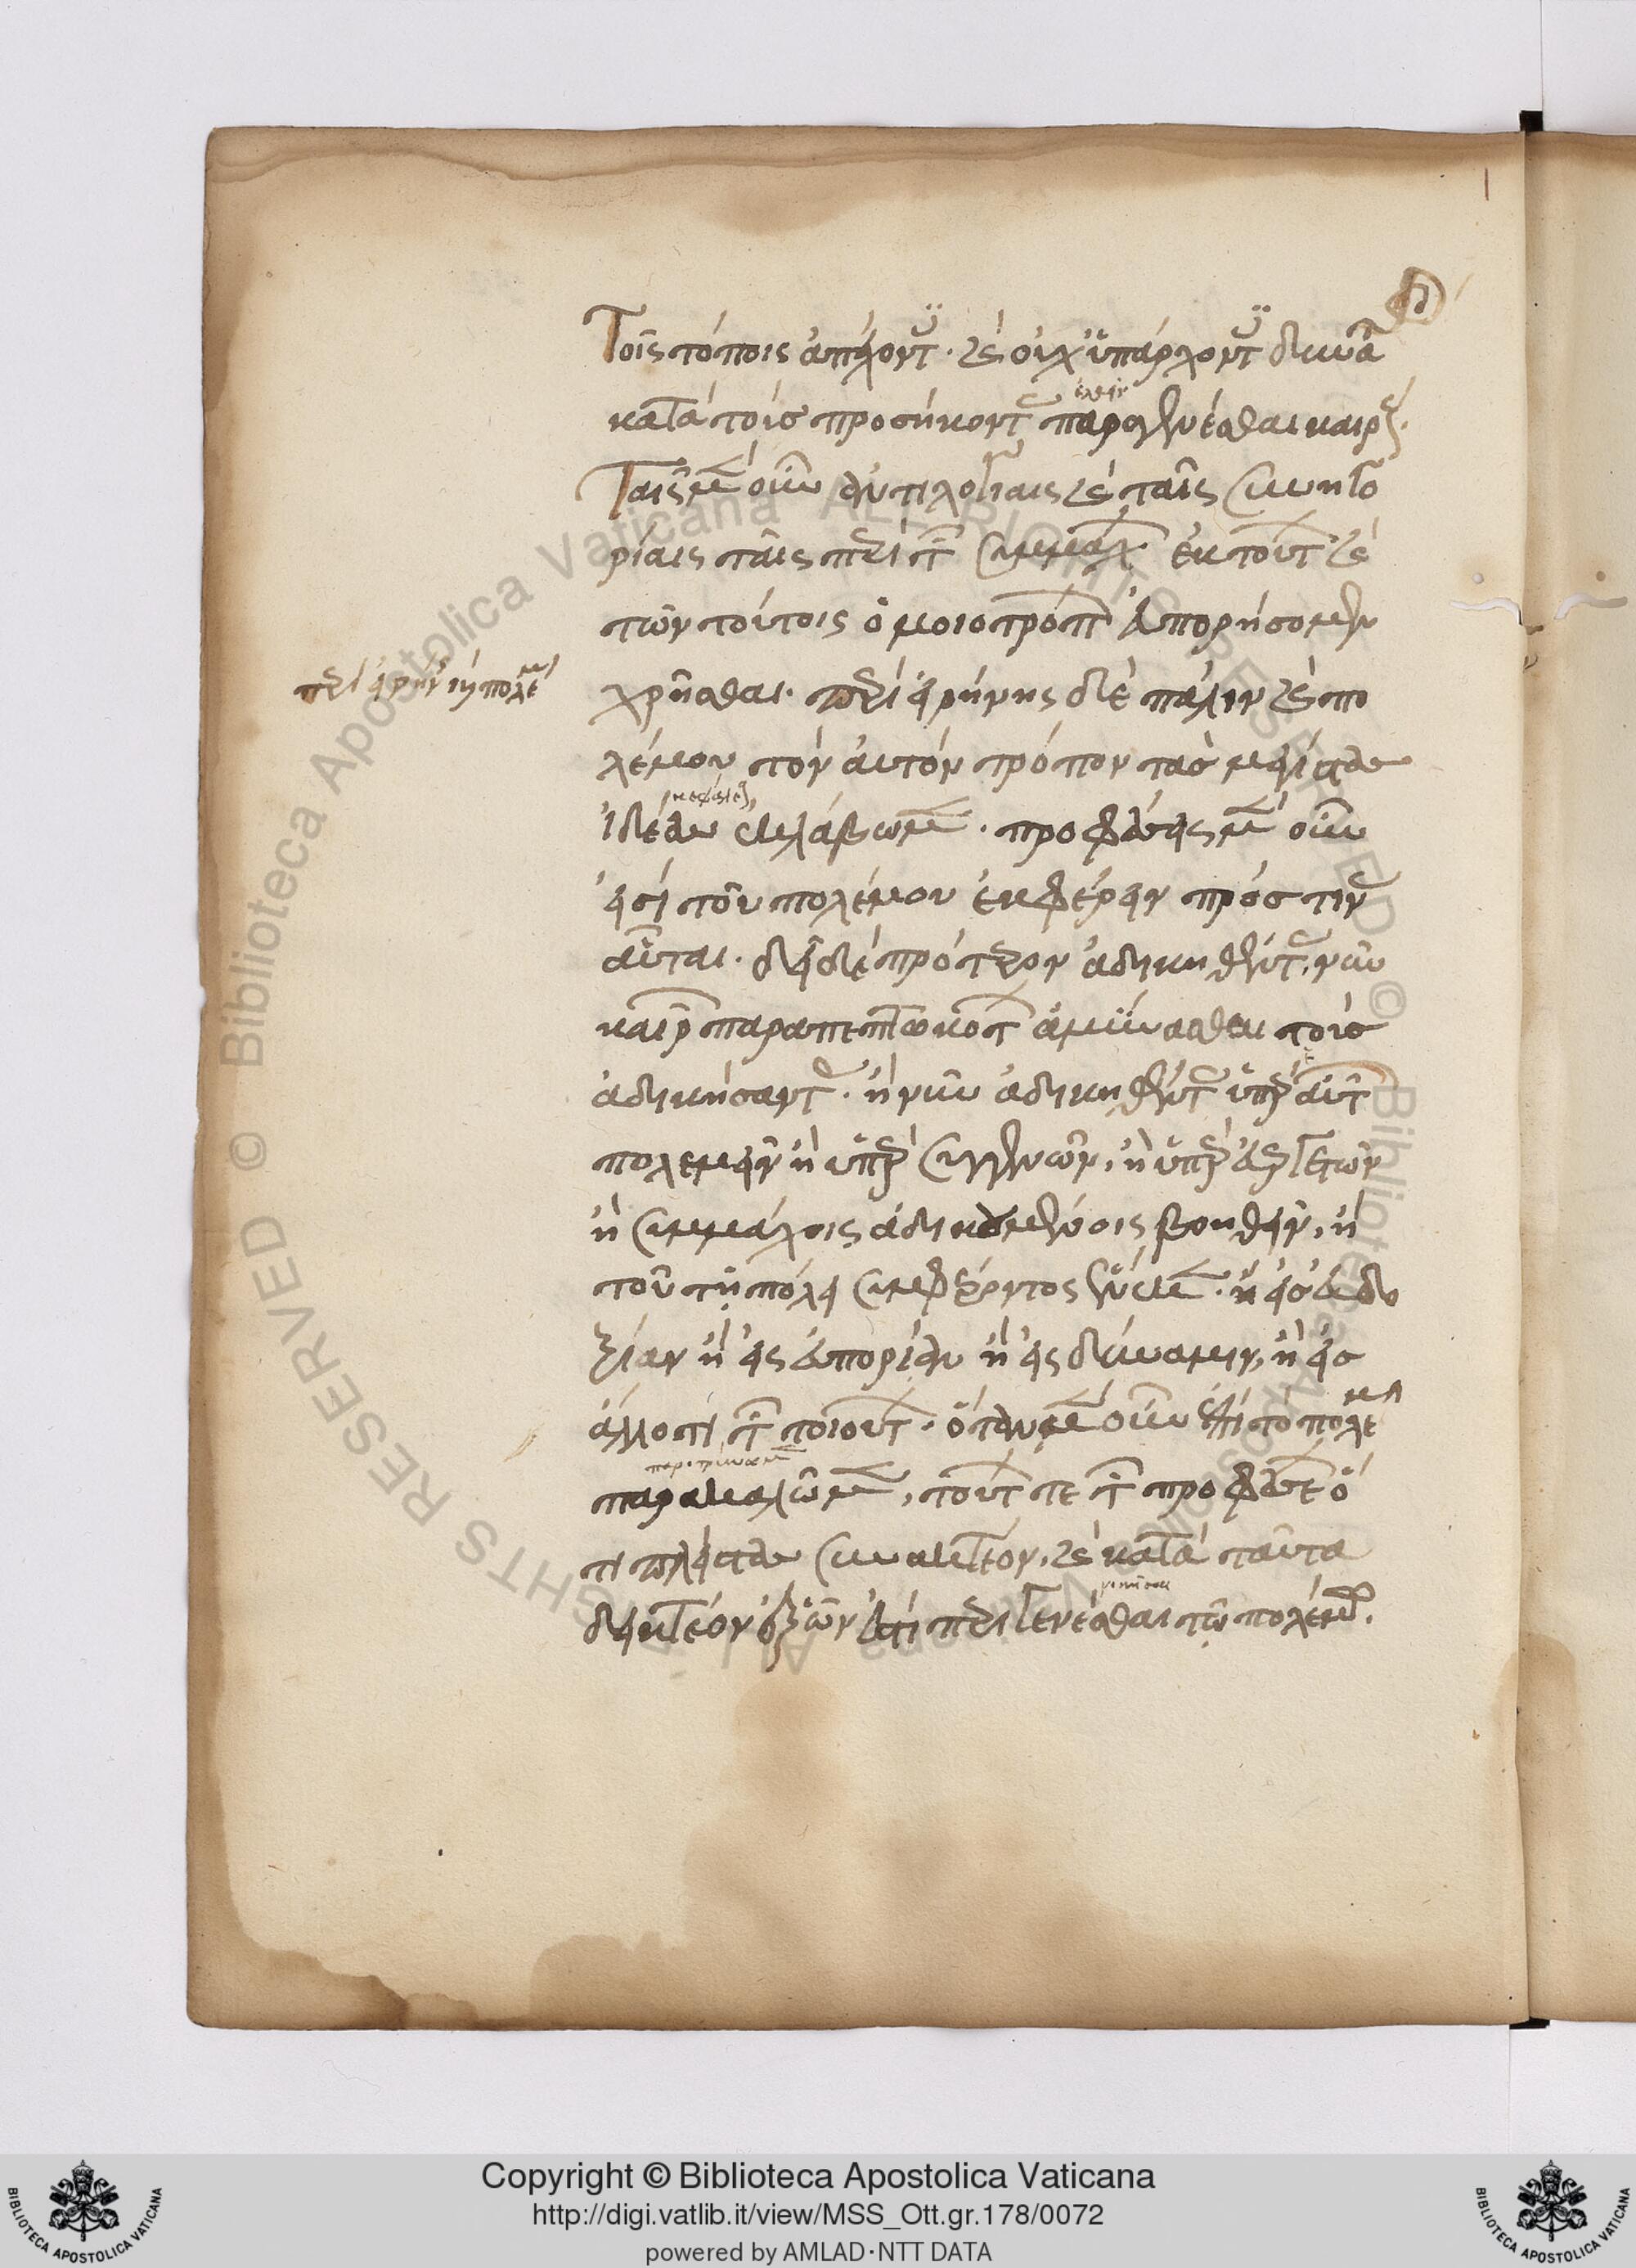 Τοῖς τόποις ἀπέχοντ(ας). καὶ οὐχ ὑπάρχοντ(ας) δυνατ
ἐλθεῖν
κατὰ τοὺς προσήκοντ(ας) παραγενέσθαι καιρούς.
Ταῖς μὲν οὖν ἀντιλογίαις καὶ ταῖς συνηγο
ρίαις ταῖς περὶ τῶν συμμάχ(ων) ἐκ τούτ(ων) καὶ
τῶν τούτοις ὁμοιοτρόπ(ων) εὐπορήσομεν
περὶ εἰρήν(ης) ἢ πολέμ(ου)
χρῆσθαι. περὶ εἰρήνης δὲ πάλιν καὶ πο
λέμου τὸν αὐτὸν τρόπον τὰς μεγίστας
ἰδέας ἐκλάβωμεν. προφάσεις μὲν οὖν
εἰσὶ τοῦ πολέμου ἐκφέρειν πρός τινας
αὗται. δεῖ δὲ πρότερον ἀδικηθέντ(ας), νῦν
καιρ(ῶν) παραπεπτωκότ(ων) ἀμύνασθαι τοὺς
ἀδικήσαντ(ας). ἢ νῦν ἀδικηθέντ(ας) ὑπὲρ ἑαυτ(ῶν)
πολεμεῖν ἢ ὑπὲρ συγγενῶν, ἢ ὑπὲρ εὐεργετῶν
ἢ συμμάχοις ἀδικουμένοις βοηθεῖν, ἢ
τοῦ τῇ πόλει συμφέροντος ἕνεκεν. ἢ εἰς εὐδο
ξίαν ἢ εἰς εὐπορίαν ἢ εἰς δύναμιν, ἢ εἰς
ἄλλο τι τῶν τοιούτ(ων). ὅταν μὲν οὖν ἐπὶ τὸ πολεμεῖν
παρακαλῶμεν, τούτ(ων) τε τῶν προφάσε(ων) ὅ
τι πλείστας συνακτέον, καὶ κατὰ ταῦτα
δεικτέον ἐξ ὧν ἐστὶ περιγενέσθαι τῷ πολέμῳ.
Copyright © Biblioteca Apostolica Vaticana
http://digi.vatlib.it/view/MSS_Ott.gr.178/0072
powered by AMLAD·NTT DATA